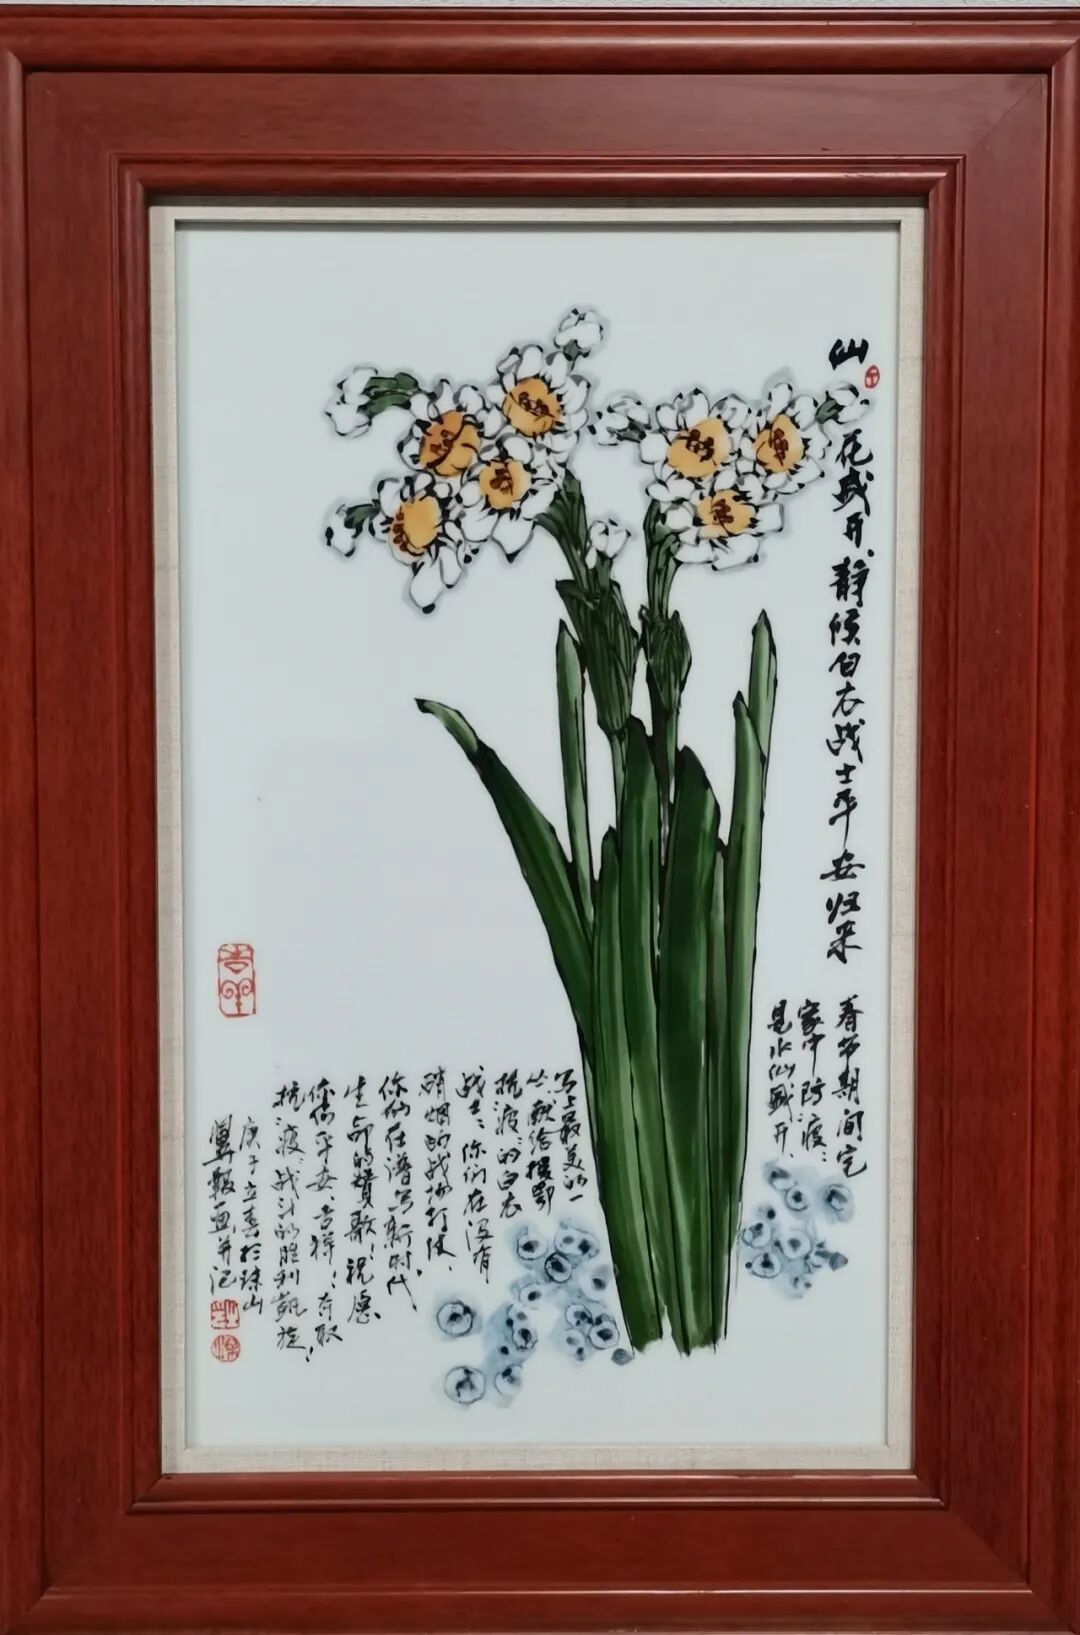 仙花盛开、静候白衣战士平安归来
春节期间宅
家中防疫:
是水仙盛开、
写上最美的一
丛献给援鄂
抗疫的白衣
战士:你们在没有
硝烟的战场打仗、
你们在谱写新时代
生命的赞歌!祝愿
你们平安、吉祥!夺取
抗疫战斗的胜利凯旋!
庚子立春於珠山
画并记